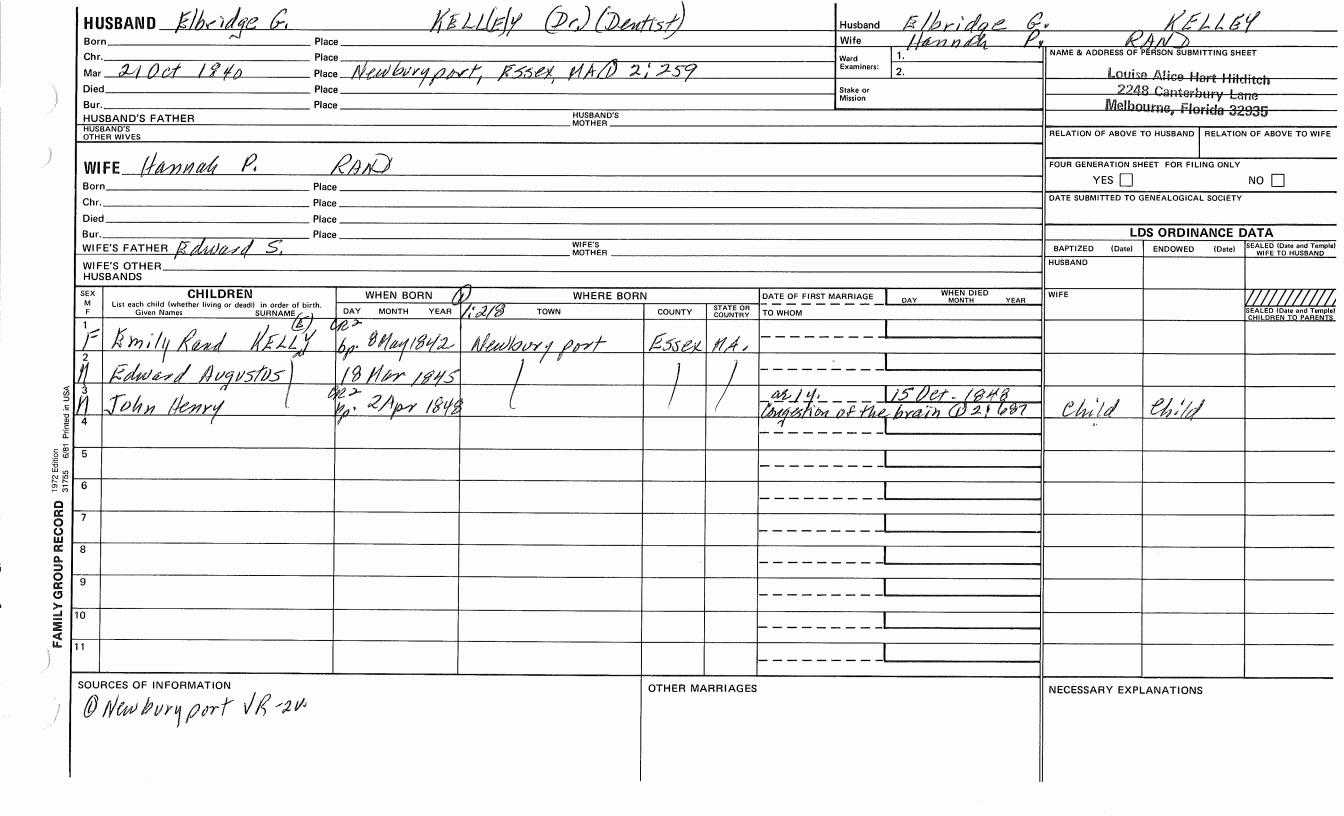 HUSBAND Elbridge G. KELL(E)Y (Dr.) (Dentist)
Born Place
Chr. Place
Mar 21 Oct 1840 Place Newburyport, Essex, MA ① 2:259
Died Place
Bur. Place
HUSBAND'S FATHER HUSBAND'S MOTHER
HUSBAND'S OTHER WIVES
Husband Elbridge G. KELLEY
Wife Hannah P. RAND
Ward Examiners: 1.
2.
Stake or Mission
NAME & ADDRESS OF PERSON SUBMITTING SHEET
Louise Alice Hart Hilditch
2248 Canterbury Lane
Melbourne, Florida 32935
RELATION OF ABOVE TO HUSBAND RELATION OF ABOVE TO WIFE
FOUR GENERATION SHEET FOR FILING ONLY
YES NO
DATE SUBMITTED TO GENEALOGICAL SOCIETY
WIFE Hannah P. RAND
Born Place
Chr. Place
Died Place
Bur. Place
WIFE'S FATHER Edward S. WIFE'S MOTHER
WIFE'S OTHER HUSBANDS
LDS ORDINANCE DATA
BAPTIZED (Date) ENDOWED (Date) SEALED (Date and Temple) WIFE TO HUSBAND
HUSBAND
WIFE
SEALED (Date and Temple) CHILDREN TO PARENTS
SEX M F
CHILDREN
List each child (whether living or dead) in order of birth.
Given Names SURNAME
WHEN BORN ① WHERE BORN
DAY MONTH YEAR 1:218 TOWN COUNTY STATE OR COUNTRY
DATE OF FIRST MARRIAGE
TO WHOM
WHEN DIED
DAY MONTH YEAR
1 F Emily Rand KELL(E)Y CR2 bp. 8 May 1842 Newburyport Essex MA.
2 M Edward Augustus 18 Mar 1845
3 M John Henry CR2 bp. 2 Apr 1848 ae 1y. 15 Oct. 1848
Congestion of the brain ① 2:687 Child Child
4
5
6
7
8
9
10
11
FAMILY GROUP RECORD 1972 Edition
31755 6/81 Printed in USA
SOURCES OF INFORMATION
① Newburyport VR-2v.
OTHER MARRIAGES
NECESSARY EXPLANATIONS